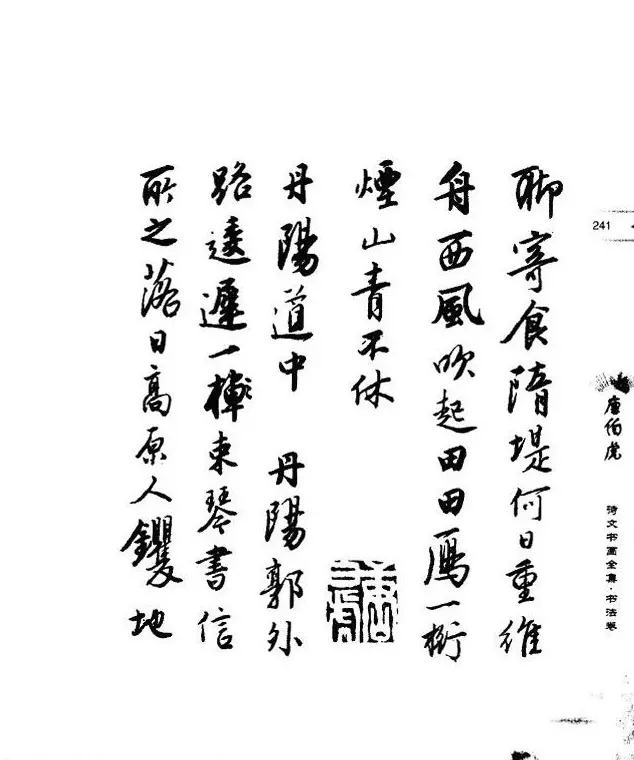 241
唐伯虎
诗文书画全集·书法卷
聊寄食隋堤何日重維
舟西風吹起田田鴈一桁
煙山青不休
丹陽道中 丹陽郭外
路逶遲一棹束琴書信
所之落日高原人钁地